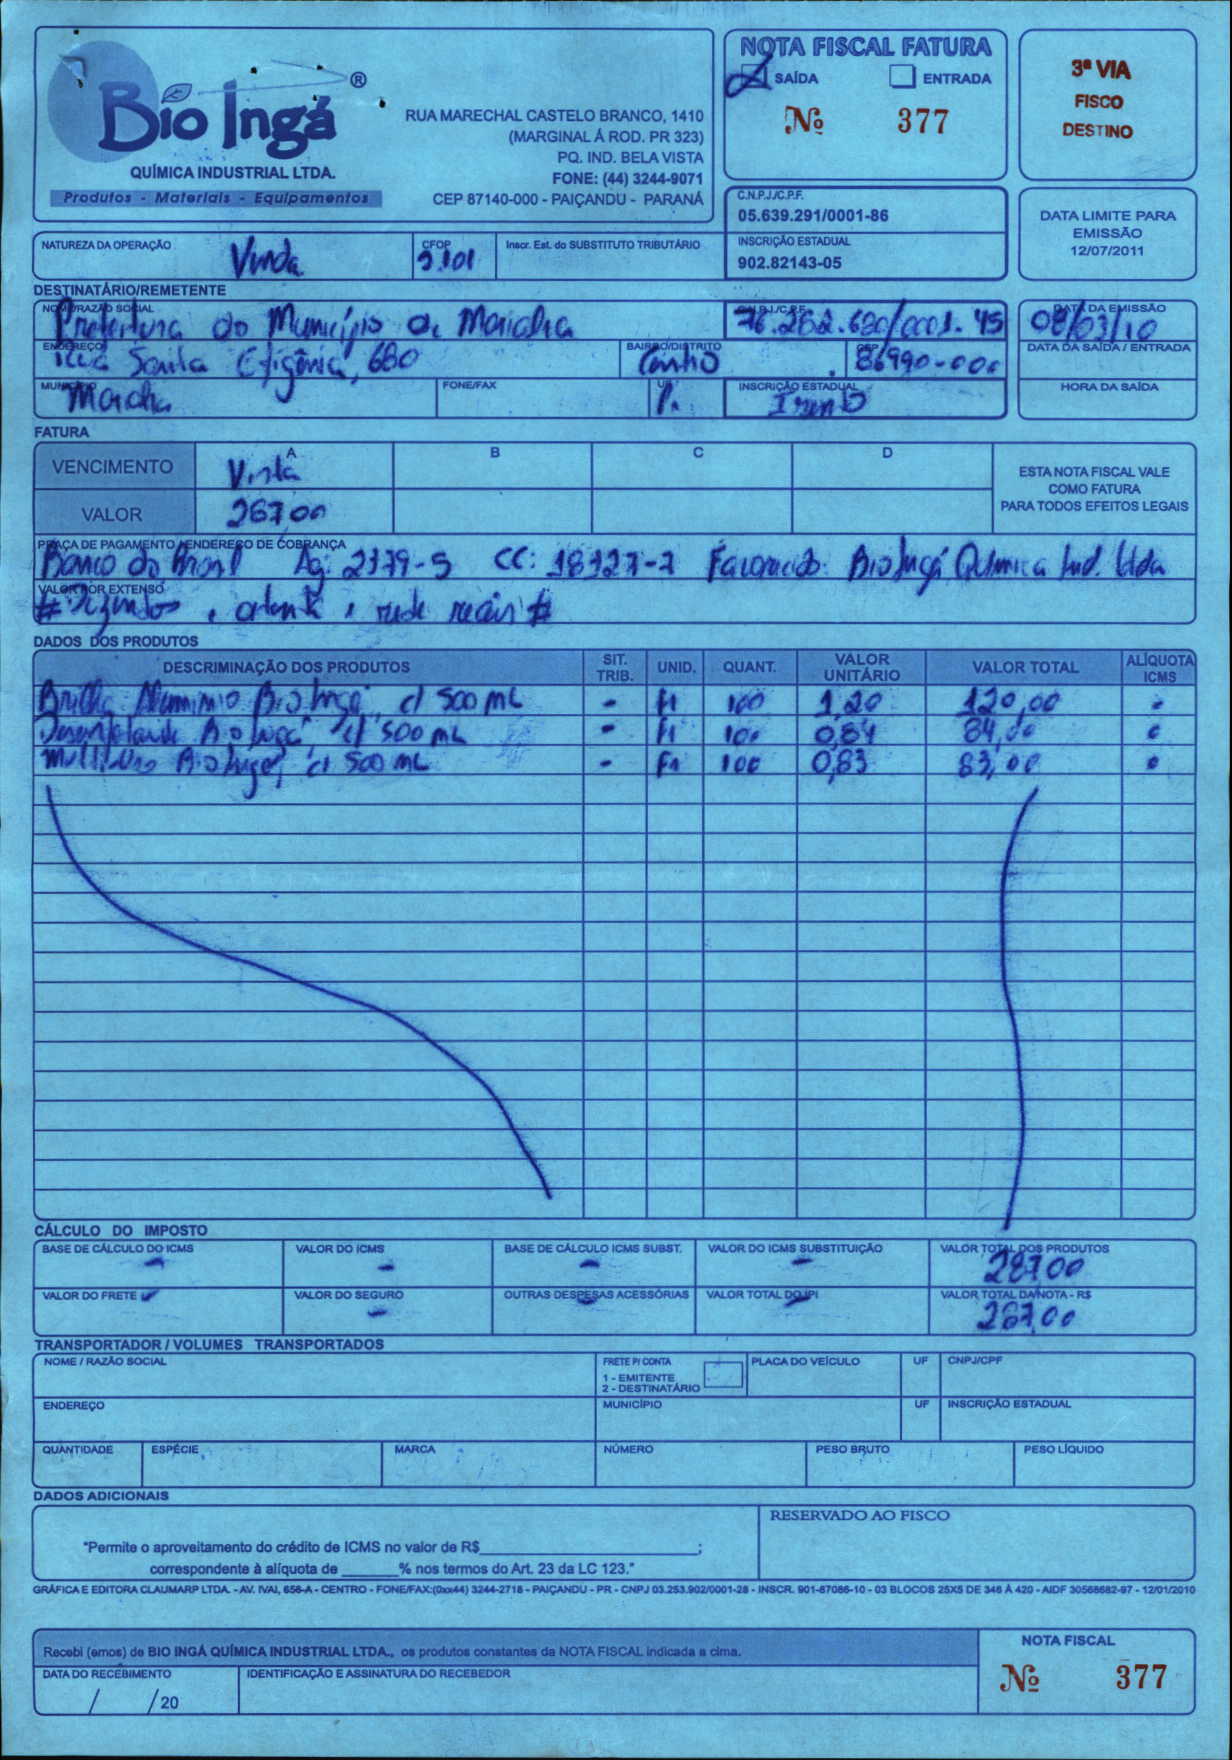 Bio Ingá ®
QUÍMICA INDUSTRIAL LTDA.
Produtos - Materiais - Equipamentos
RUA MARECHAL CASTELO BRANCO, 1410
(MARGINAL Á ROD. PR 323)
PQ. IND. BELA VISTA
FONE: (44) 3244-9071
CEP 87140-000 - PAIÇANDU - PARANÁ
NOTA FISCAL FATURA
SAÍDA ENTRADA
Nº 377
3ª VIA
FISCO
DESTINO
C.N.P.J./C.P.F.
05.639.291/0001-86
INSCRIÇÃO ESTADUAL
902.82143-05
DATA LIMITE PARA
EMISSÃO
12/07/2011
NATUREZA DA OPERAÇÃO CFOP Inscr. Est. do SUBSTITUTO TRIBUTÁRIO
Venda 5.101
DESTINATÁRIO/REMETENTE
NOME/RAZÃO SOCIAL C.N.P.J./C.P.F. DATA DA EMISSÃO
Prefeitura do Município de Marialva 76.282.680/0001-45 08/03/10
ENDEREÇO BAIRRO/DISTRITO CEP DATA DA SAÍDA / ENTRADA
Rua Santa Efigênia, 680 Centro 86990-000
MUNICÍPIO FONE/FAX UF INSCRIÇÃO ESTADUAL HORA DA SAÍDA
Marialva Pr. Isento
FATURA
VENCIMENTO A B C D
Vista
VALOR 287,00
ESTA NOTA FISCAL VALE
COMO FATURA
PARA TODOS EFEITOS LEGAIS
PRAÇA DE PAGAMENTO / ENDEREÇO DE COBRANÇA
Banco do Brasil Ag: 2379-5 CC: 18327-7 Favorecido: Bio Ingá Química Ind. Ltda
VALOR POR EXTENSO
# Duzentos e oitenta e sete reais #
DADOS DOS PRODUTOS
DESCRIMINAÇÃO DOS PRODUTOS SIT. TRIB. UNID. QUANT. VALOR UNITÁRIO VALOR TOTAL ALÍQUOTA ICMS
Brilha Alumínio Bio Ingá, c/ 500 mL - Fr 100 1,20 120,00
Desinfetante Bio Ingá, c/ 500 mL - Fr 100 0,84 84,00
Multi Uso Bio Ingá, c/ 500 mL - Fr 100 0,83 83,00
CÁLCULO DO IMPOSTO
BASE DE CÁLCULO DO ICMS VALOR DO ICMS BASE DE CÁLCULO ICMS SUBST. VALOR DO ICMS SUBSTITUIÇÃO VALOR TOTAL DOS PRODUTOS
- - - - 287,00
VALOR DO FRETE VALOR DO SEGURO OUTRAS DESPESAS ACESSÓRIAS VALOR TOTAL DO IPI VALOR TOTAL DA NOTA - R$
- - - - 287,00
TRANSPORTADOR / VOLUMES TRANSPORTADOS
NOME / RAZÃO SOCIAL FRETE P/ CONTA PLACA DO VEÍCULO UF CNPJ/CPF
1 - EMITENTE
2 - DESTINATÁRIO
ENDEREÇO MUNICÍPIO UF INSCRIÇÃO ESTADUAL
QUANTIDADE ESPÉCIE MARCA NÚMERO PESO BRUTO PESO LÍQUIDO
DADOS ADICIONAIS
RESERVADO AO FISCO
"Permite o aproveitamento do crédito de ICMS no valor de R$____________________;
correspondente à alíquota de _______% nos termos do Art. 23 da LC 123."
GRÁFICA E EDITORA CLAUMARP LTDA. - AV. IVAI, 656-A - CENTRO - FONE/FAX:(0xx44) 3244-2718 - PAIÇANDU - PR - CNPJ 03.253.902/0001-28 - INSCR. 901-87086-10 - 03 BLOCOS 25X5 DE 346 À 420 - AIDF 30568682-97 - 12/01/2010
Recebi (emos) de BIO INGÁ QUÍMICA INDUSTRIAL LTDA., os produtos constantes da NOTA FISCAL indicada a cima.
DATA DO RECEBIMENTO IDENTIFICAÇÃO E ASSINATURA DO RECEBEDOR
/ /20
NOTA FISCAL
Nº 377